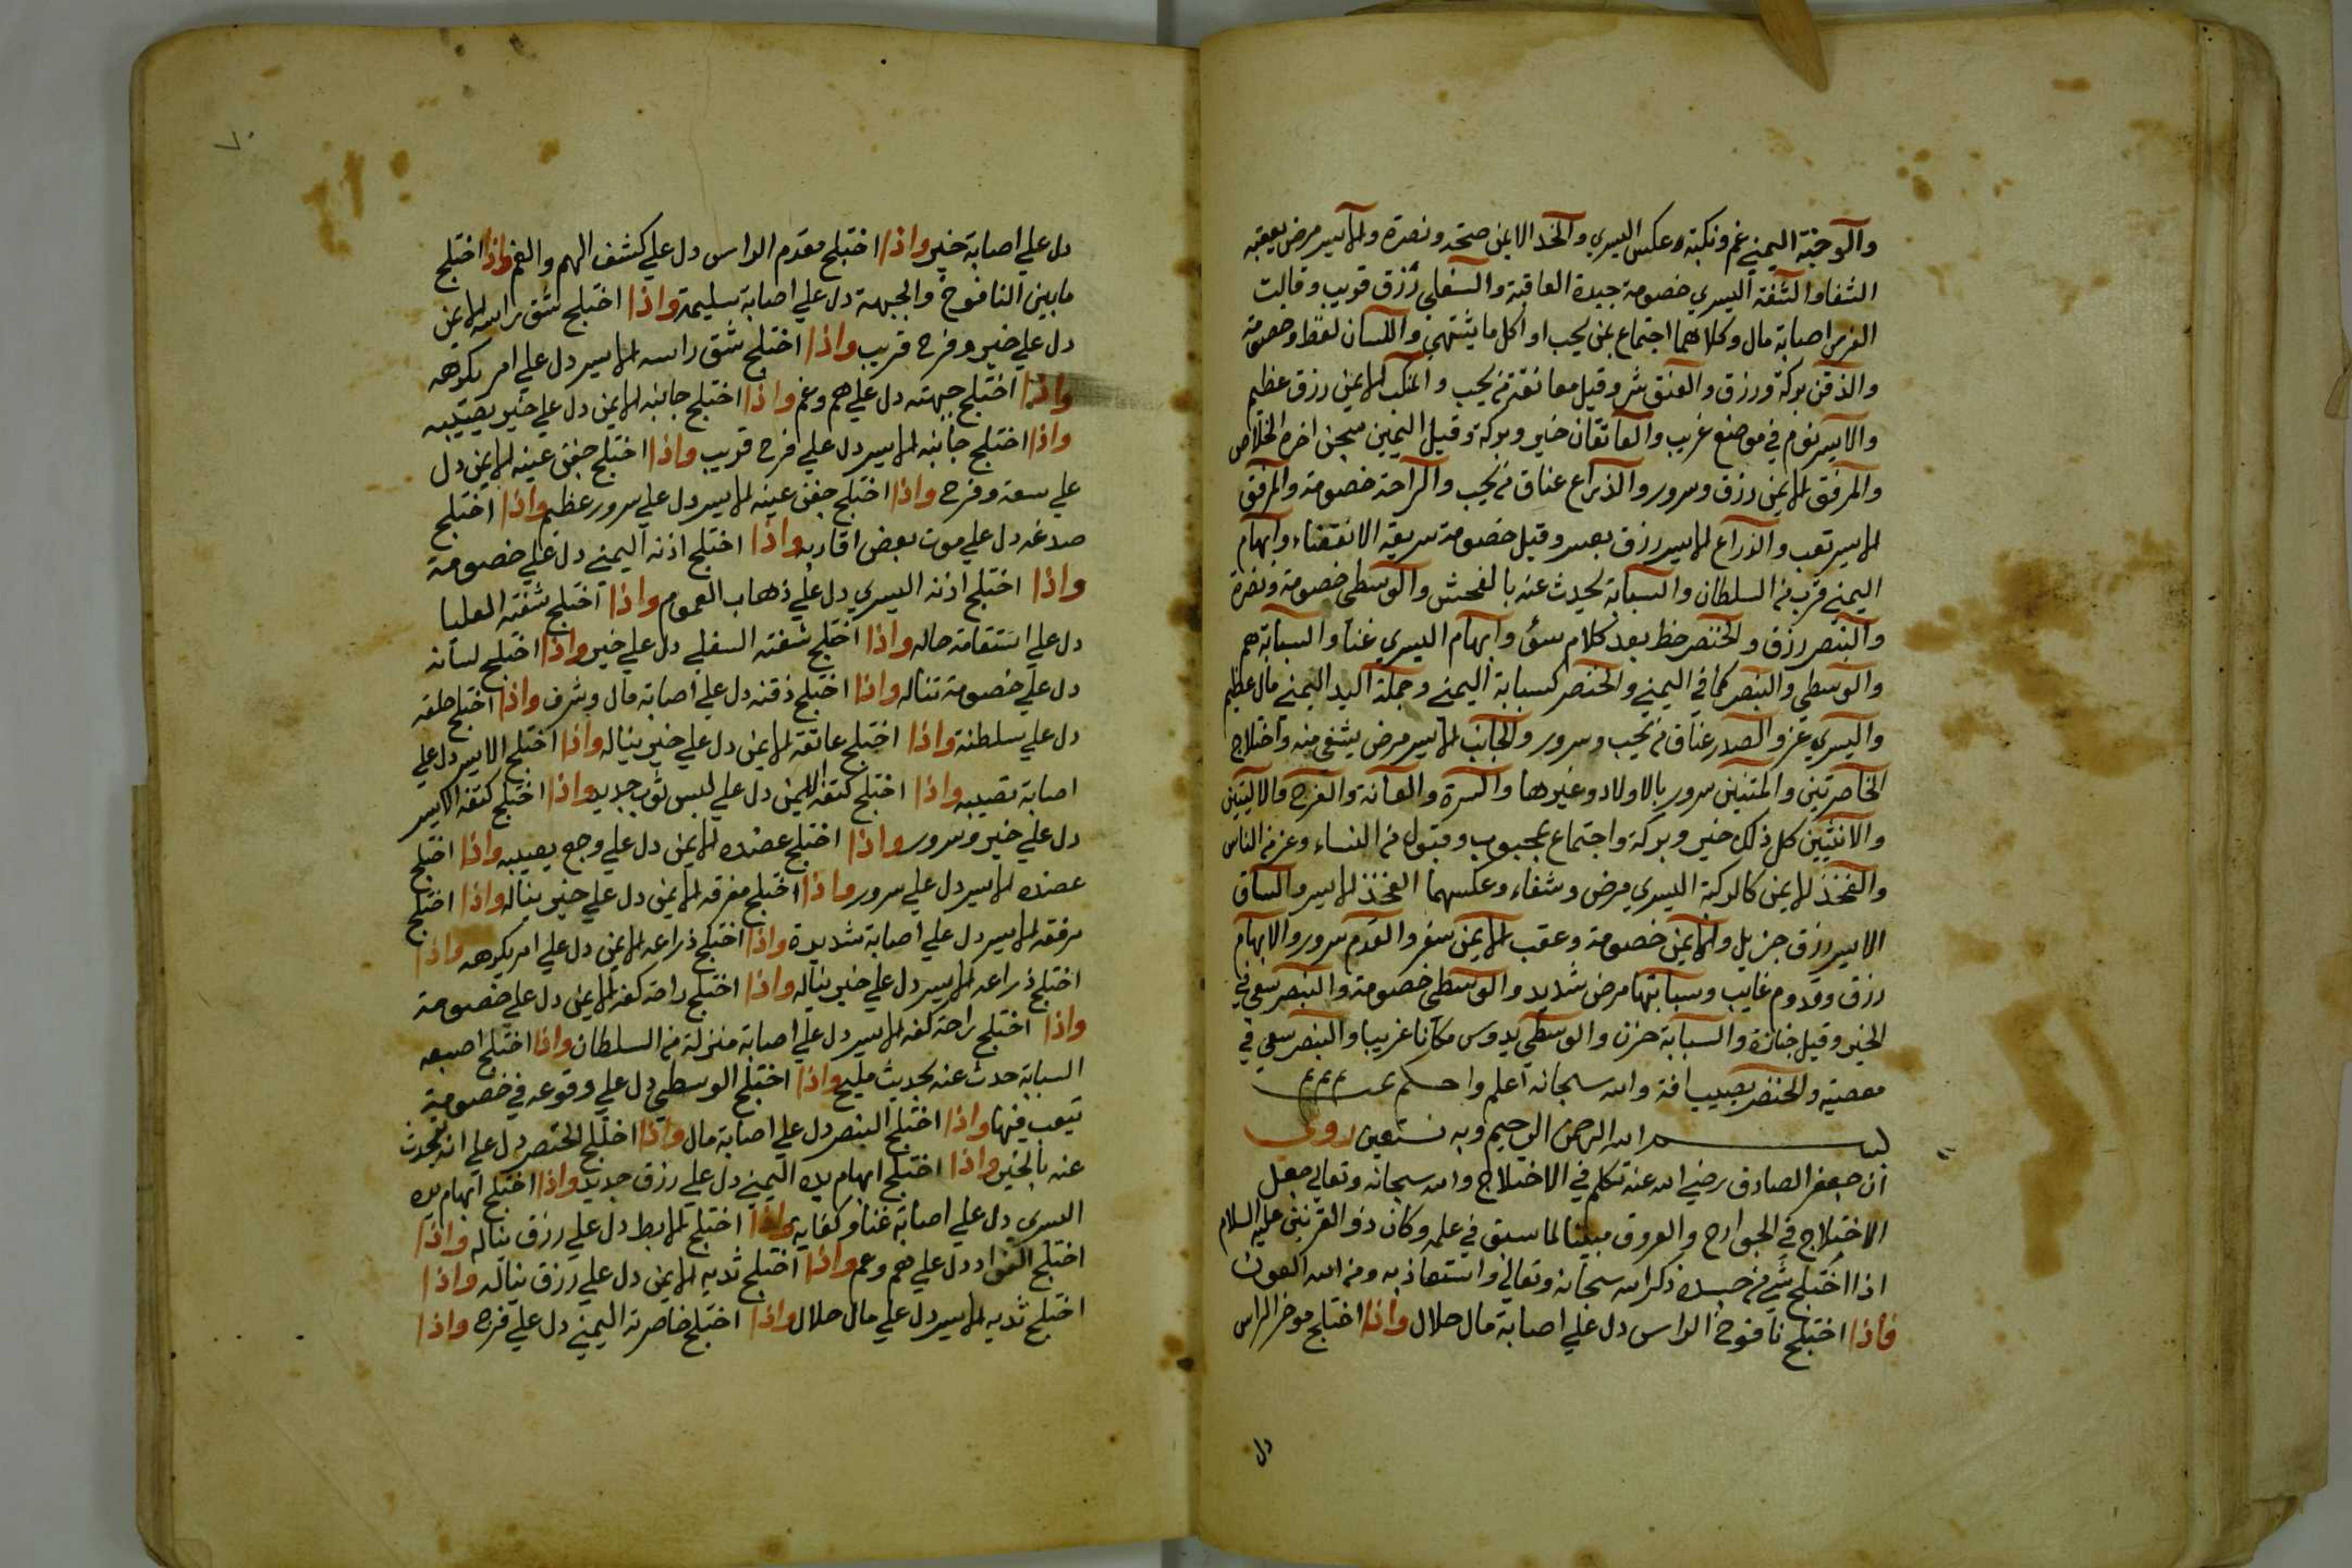 والوجنة اليمني غم ونكبة وعكس اليسري والخد الايمن صحة ونضرة والايسر مرض يعقبه
الشفا والشفة اليسري خصومة جيدة العاقبة والسفلي رزق قريب وقالت
الفرس اصابة مال وكلاهما اجتماع بمن يحب او اكل ما يشتهي واللسان لغط وخصومة
والذقن بركة ورزق والعنق شر وقيل معانقة من يحب والمنكب الايمن رزق عظيم
والايسر نوم في موضع غريب والعاتقان خير وبركة وقيل اليمين سجن اخره الخلاص
والمرفق الايمن رزق وسرور والذراع عناق من يحب والراحة خصومة والمرفق
الايسر تعب والذراع الايسر رزق بعسر وقيل خصومة سريعة الانقضاء وابهام
اليمني قرب من السلطان والسبابة يحدث عنه بالفحش والوسطي خصومة ونضرة
والبنصر رزق والخنصر حظ بعد كلام سئ وابهام اليسري غنا والسبابة هم
والوسطي والبنصر كما في اليمني والخنصر كسبابة اليمني وجملة اليد اليمني مال عظيم
واليسري عز والصدر عناق من يحب وسرور والجانب الايسر مرض يشفي منه واختلاج
الخاصرتين والمتنين سرور بالاولاد وغيرها والسرة والعانة والفرج والاليتين
والانثيين كل ذلك خير وبركة واجتماع بمحبوب وقبول من النساء وعز من الناس
والفخذ الايمن كالركبة اليسري مرض وشفاء وعكسهما الفخذ الايسر والساق
الايسر رزق جزيل والايمن خصومة وعقب الايمن سفر والقدم سرور والابهام
رزق وقدوم غايب وسبابتها مرض شديد والوسطي خصومة والبنصر سعي في
الخير وقيل جنازة والسبابة حزن والوسطي يدوس مكانا غريبا والبنصر سعي في
معصية والخنصر يصيب افة والله سبحانه اعلم واحكم تمت م م م
بسم الله الرحمن الرحيم وبه نستعين روي
ان جعفر الصادق رضي الله عنه تكلم في الاختلاج والله سبحانه وتعالي جعل
الاختلاج في الجوارح والعروق مبينا لما سبق في علمه وكان ذو القرنين عليه السلام
اذا اختلج شي من جسده ذكر الله سبحانه وتعالي واستعاذ به ومن الله العون
فاذا اختلج نافوخ الراس دل علي اصابة مال حلال واذا اختلج موخر الراس
دل
٧٠
دل علي اصابة خير واذا اختلج مقدم الراس دل علي كشف الهم والغم واذا اختلج
مابين النافوخ والجبهة دل علي اصابة سليمة واذا اختلج شق راسه الايمن
دل علي خير وفرح قريب واذا اختلج شق راسه الايسر دل علي امر يكرهه
واذا اختلج جبهته دل علي هم وغم واذا اختلج جانبه الايمن دل علي خير يصيبه
واذا اختلج جانبه الايسر دل علي فرح قريب واذا اختلج جفن عينه الايمن دل
علي سعة وفرح واذا اختلج جفن عينه الايسر دل علي سرور عظيم واذا اختلج
صدغه دل علي موت بعض اقاربه واذا اختلج اذنه اليمني دل علي خصومة
واذا اختلج اذنه اليسري دل علي ذهاب الغموم واذا اختلج شفته العليا
دل علي استقامة حاله واذا اختلج شفته السفلي دل علي خير واذا اختلج لسانه
دل علي خصومة تناله واذا اختلج ذقنه دل علي اصابة مال وشرف واذا اختلج حلقه
دل علي سلطنة واذا اختلج عاتقه الايمن دل علي خير يناله واذا اختلج الايسر دل علي
اصابة تصيبه واذا اختلج كتفه الايمن دل علي لبس ثوب جديد واذا اختلج كتفه الايسر
دل علي خير وسرور واذا اختلج عضده الايمن دل علي وجع يصيبه واذا اختلج
عضده الايسر دل علي سرور واذا اختلج مفرقه الايمن دل علي خير يناله واذا اختلج
مرفقه الايسر دل علي اصابة شديدة واذا اختلج ذراعه الايمن دل علي امر يكرهه واذا
اختلج ذراعه الايسر دل علي خير يناله واذا اختلج راحة كفه الايمن دل علي خصومة
واذا اختلج راحة كفه الايسر دل علي اصابة منزلة من السلطان واذا اختلج اصبعه
السبابة حدث عنه بحديث مليح واذا اختلج الوسطي دل علي وقوعه في خصومة
تيعب فيها واذا اختلج البنصر دل علي اصابة مال واذا اختلج الخنصر دل علي انه يحدث
عنه بالخير واذا اختلج ابهام يده اليمني دل علي رزق جديد واذا اختلج ابهام يده
اليسري دل علي اصابة غنا وكفاية واذا اختلج الابط دل علي رزق يناله واذا
اختلج الفواد دل علي هم وغم واذا اختلج ثديه الايمن دل علي رزق يناله واذا
اختلج ثديه الايسر دل علي مال حلال واذا اختلج خاصرته اليمني دل علي فرح واذا